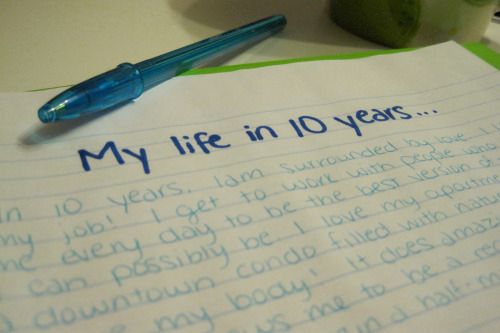 My life in 10 years...
In 10 years, I am surrounded by love. I
my job! I get to work with people who
me every day to be the best version of
I can possibly be. I love my apartme
downtown condo filled with natu
my body! It does amaz
me to be a re
in a half-m